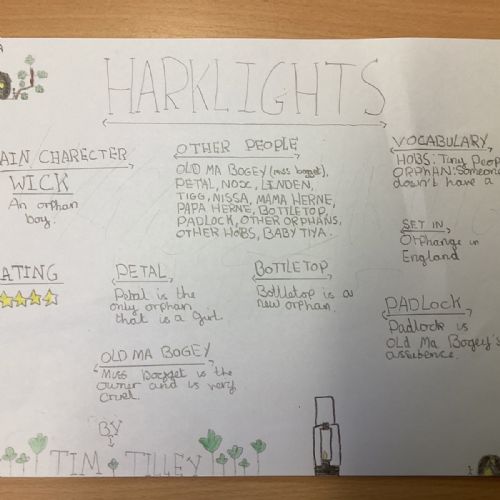 HARKLIGHTS
AIN CHARECTER
WICK
An orphan
boy.
OTHER PEOPLE
OLD MA BOGEY (miss bogget),
PETAL, NOX, LINDEN,
TIGG, NISSA, MAMA HERNE,
PAPA HERNE, BOTTLETOP,
PADLOCK, OTHER ORPHANS,
OTHER HOBS, BABY TIYA.
VOCABULARY
HOBS: Tiny Peop
ORPHAN: Someone
doesn't have a
SET IN
Orphange in
England
ATING
PETAL
Petal is the
only orphan
that is a Girl.
BOTTLETOP
Bottletop is a
new orphan.
PADLOCK
Padlock is
Old Ma Bogey's
OLD MA BOGEY
Miss Bogget is the
owner and is very
cruel.
BY
TIM TILLEY